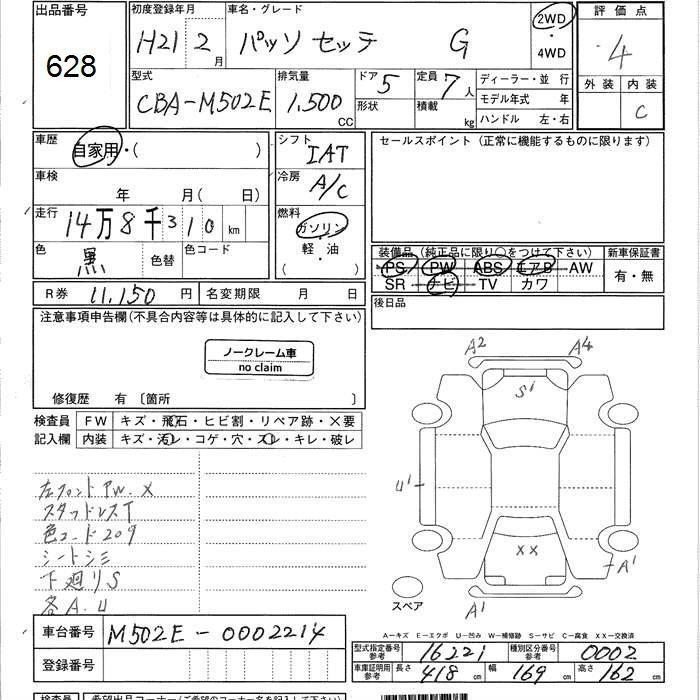 出品番号
628
初度登録年月 車名・グレード
H21 2月 パッソ セッテ G
2WD・4WD
評価点
4
外装 内装
C
型式 排気量 ドア 5 定員 7人 ディーラー・並 行
CBA-M502E 1,500 CC 形状 積載 kg モデル年式 年
ハンドル 左・右
車歴 自家用・( )
シフト IAT
セールスポイント (正常に機能するものに限ります)
車検 年 月(日)
冷房 A/C
走行 14万8千310 km
燃料 ガソリン 軽・油 ( )
色 黒 色替 色コード
装備品 (純正品に限り○をつけて下さい) 新車保証書
PS PW ABS エアB AW 有・無
SR ナビ TV カワ
R券 11,150円 名変期限 月 日
後日品
注意事項申告欄(不具合内容等は具体的に記入して下さい)
ノークレーム車
no claim
修復歴 有 〔箇所 〕
検査員 FW キズ・飛石・ヒビ割・リペア跡・×要
記入欄 内装 キズ・汚レ・コゲ・穴・スレ・キレ・破レ
左フロントPW.X
スタッドレスT
色コード209
シートシミ
下廻りS
各A.U
A2 A4
S1
U1
XX
A1
A1
スペア
A-キズ E-エクボ U-凹み W-補修跡 S-サビ C-腐食 XX-交換済
車台番号 M502E-0002214
登録番号
型式指定番号 参考 16221 種別区分番号 参考 0002
車庫証明用 参考 長さ 418cm 幅 169cm 高さ 162cm
検査員 希望出品コーナー(ご希望のコーナー名を記入して下さい)